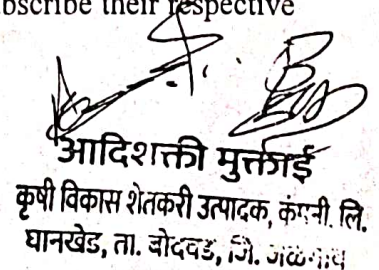 bscribe their respective
आदिशक्ती मुक्ताई
कृषी विकास शेतकरी उत्पादक, कंपनी. लि.
घानखेड, ता. बोदवड, जि. जळगाव